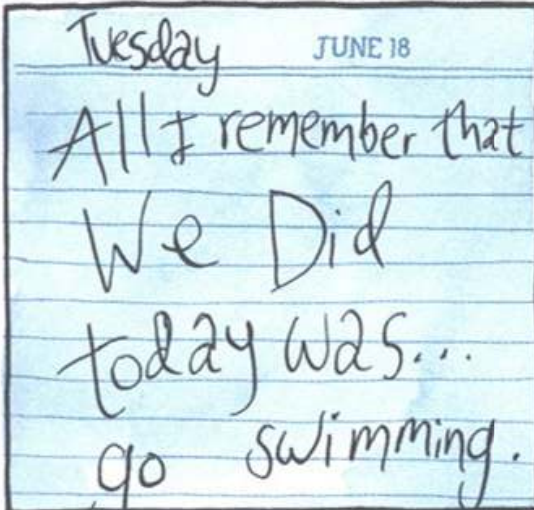 Tuesday JUNE 18
All I remember that
We Did
today was...
go swimming.